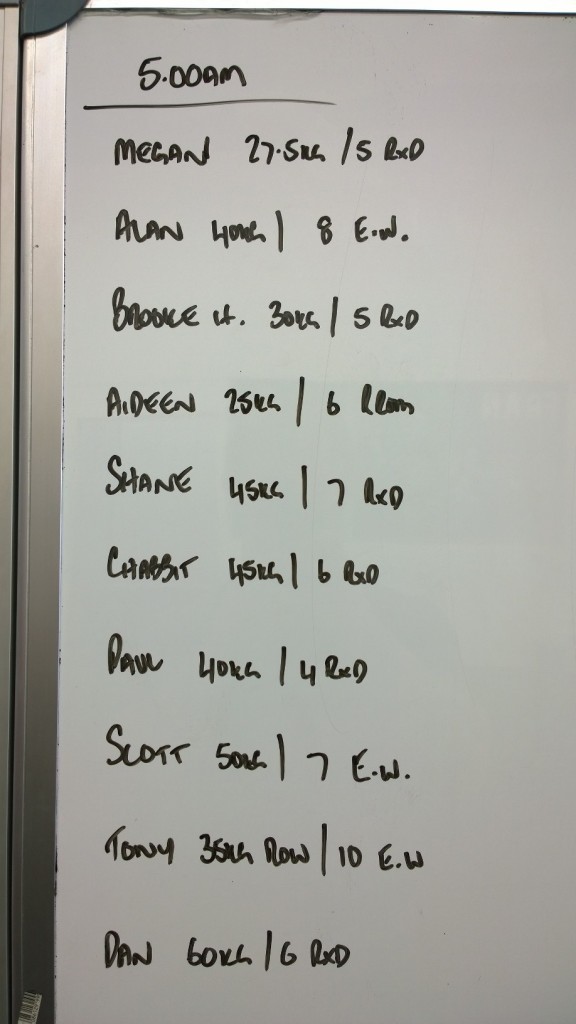 5.00AM
MEGAN 27.5KG / 5 RxD
ALAN 40KG | 8 E.W.
BROOKE H. 30KG | 5 RxD
AIDEEN 25KG | 6
SHANE 45KG | 7 RxD
CHABBIT 45KG | 6 RxD
PAUL 40KG | 4 RxD
SCOTT 50KG | 7 E.W.
TONY 35KG ROW | 10 E.W
DAN 60KG / 6 RxD